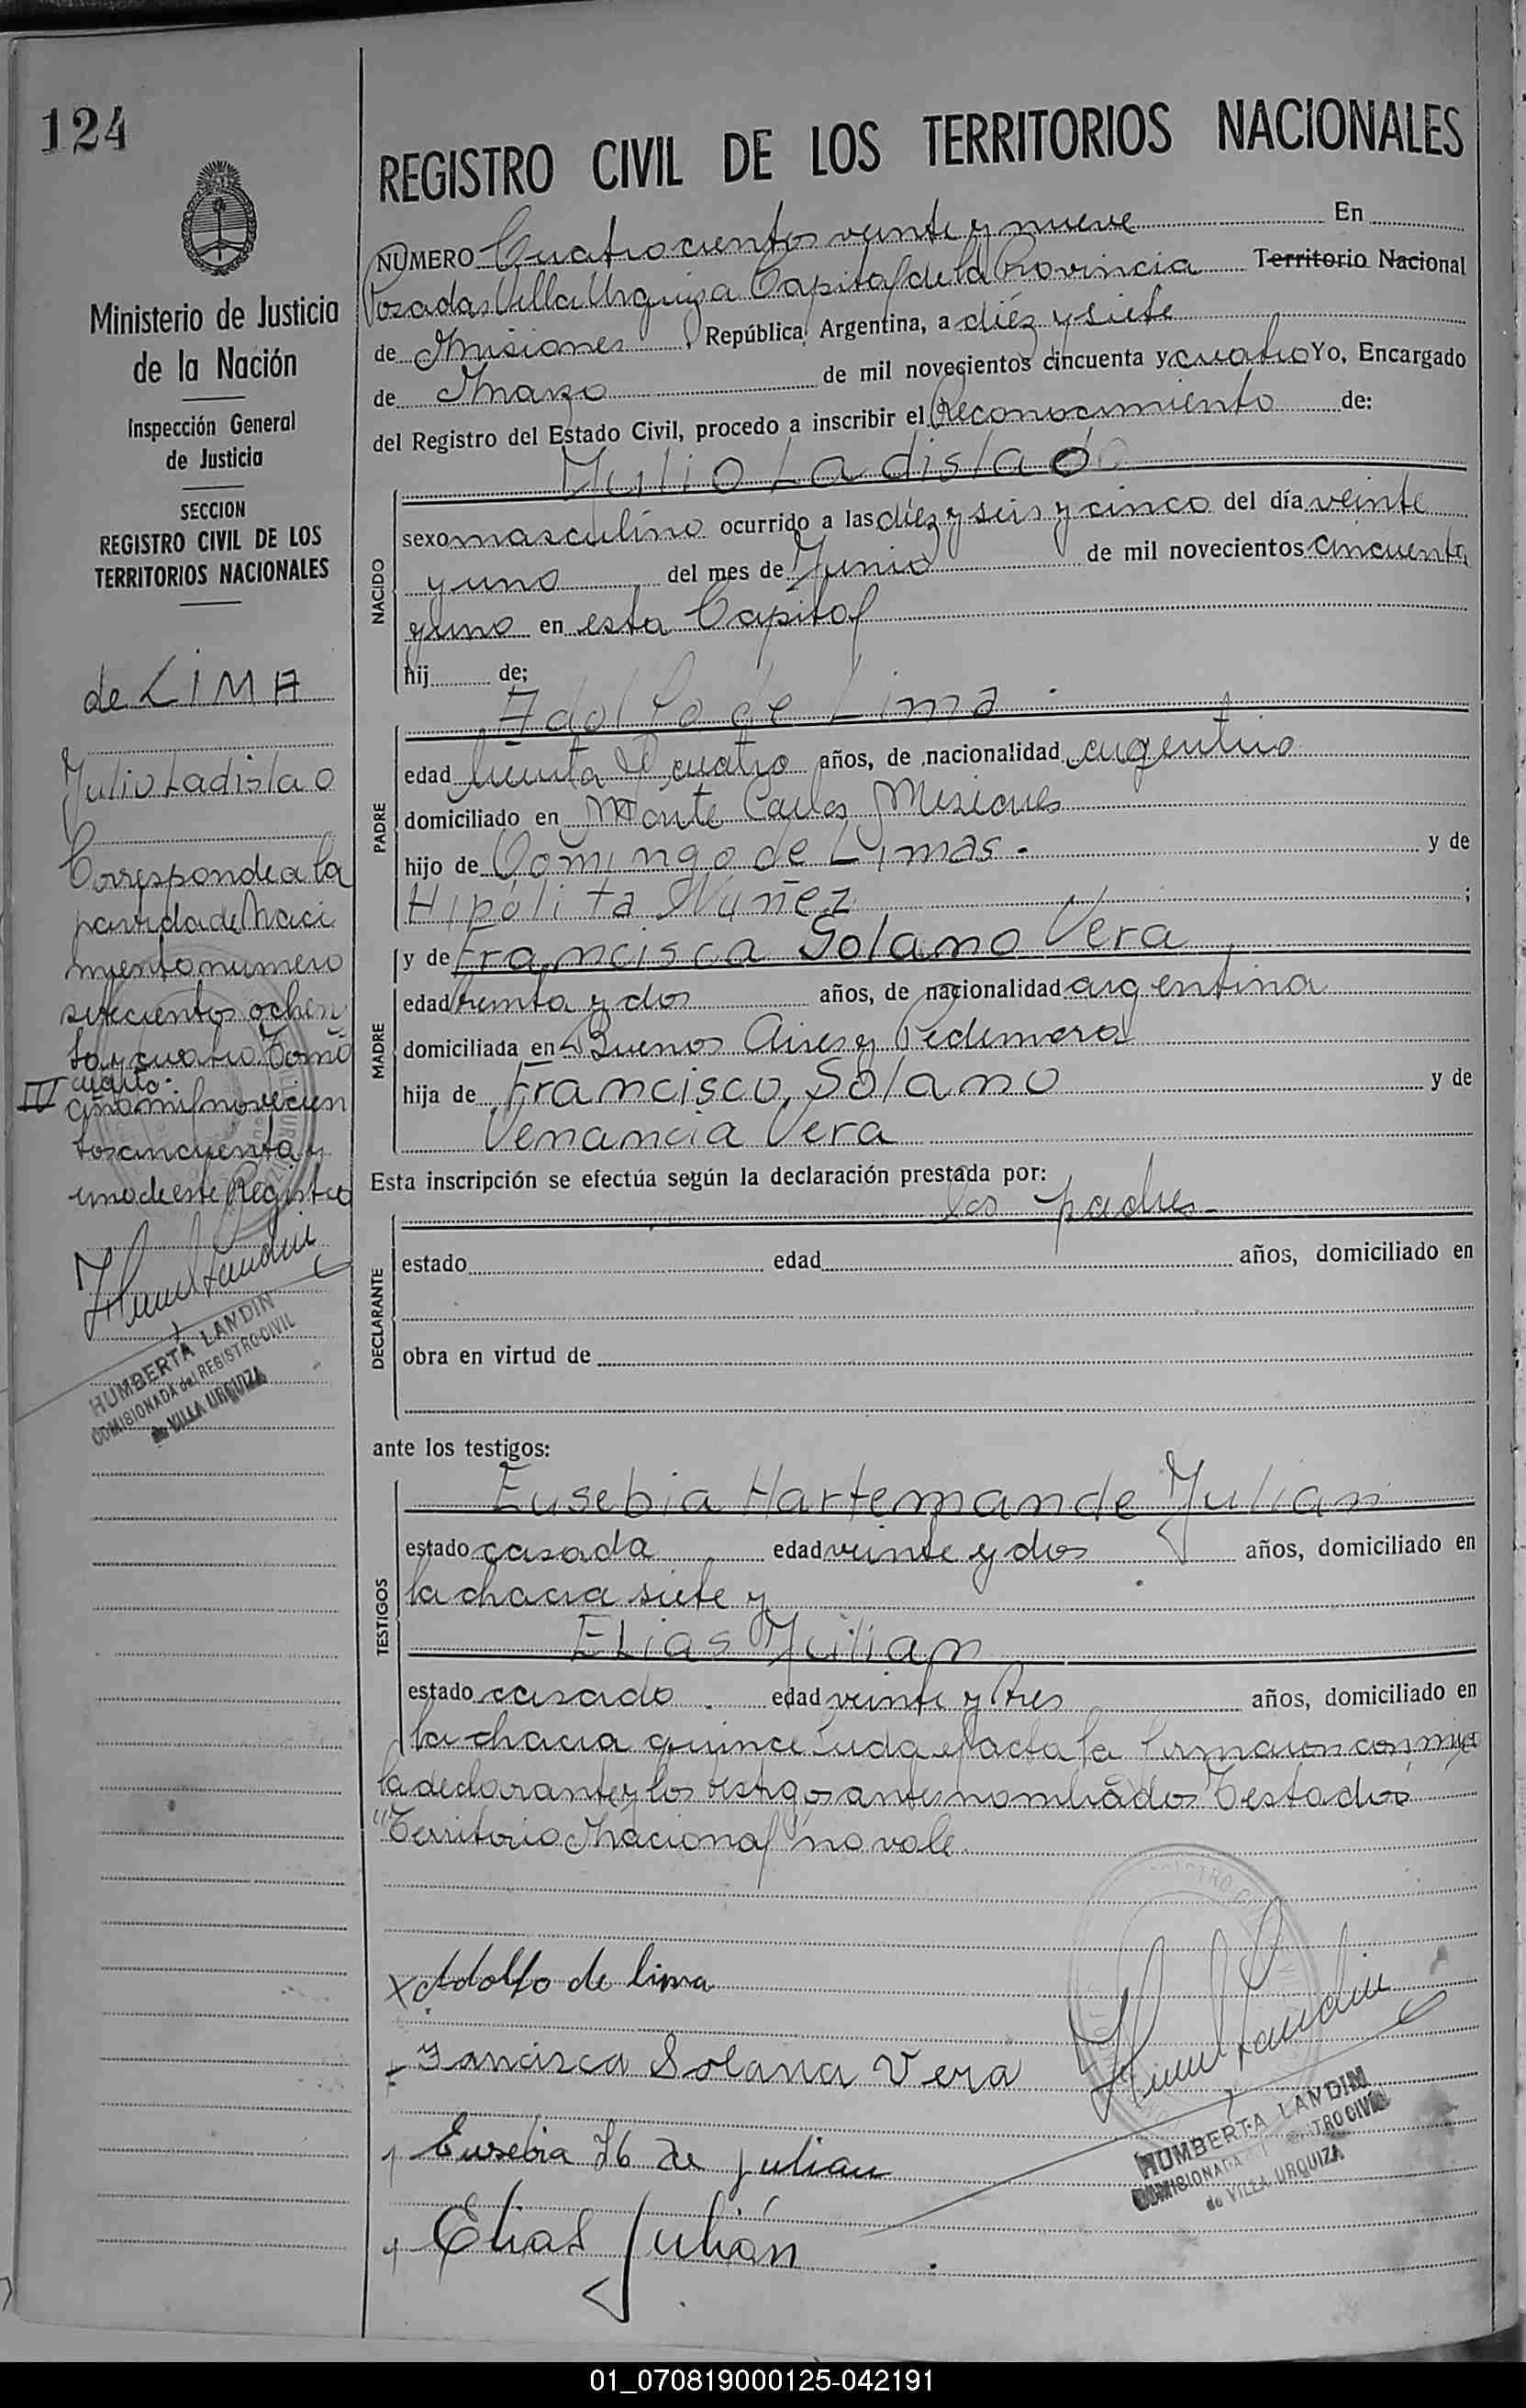 124
Ministerio de Justicia
de la Nación
Inspección General
de Justicia
SECCION
REGISTRO CIVIL DE LOS
TERRITORIOS NACIONALES
de LIMA
Julio Ladislao
Corresponde a la
partida de Naci
miento numero
setecientos ochen
ta y cuatro Tomo
IV cuarto.
año mil novecien
tos cincuenta y
uno de este Registro
HUMBERTA LANDIN
COMISIONADA del REGISTRO CIVIL
de VILLA URQUIZA
REGISTRO CIVIL DE LOS TERRITORIOS NACIONALES
NUMERO Cuatrocientos veinte y nueve En
Posadas Villa Urquiza Capital de la Provincia Territorio Nacional
de Misiones República Argentina, a diéz y siete
de Marzo de mil novecientos cincuenta y cuatro Yo, Encargado
del Registro del Estado Civil, procedo a inscribir el Reconocimiento de:
Julio Ladislao
NACIDO
sexo masculino ocurrido a las diéz y seis y cinco del día veinte
y uno del mes de Junio de mil novecientos cincuenta
y uno en esta Capital
hij de;
Adolfo de Lima
PADRE
edad treinta y cuatro años, de nacionalidad argentino
domiciliado en Monte Carlos Misiones
hijo de Domingo de Limas y de
Hipólita Nuñez ;
MADRE
y de Francisca Solano Vera
edad treinta y dos años, de nacionalidad argentina
domiciliada en Buenos Aires y Pedernera
hija de Francisco Solano y de
Venancia Vera
Esta inscripción se efectúa según la declaración prestada por:
los padres
DECLARANTE
estado edad años, domiciliado en
obra en virtud de
ante los testigos:
TESTIGOS
Eusebia Harteman de Julian
estado casada edad veinte y dos años, domiciliado en
la chacra siete y
Elias Julian
estado casado edad veinte y tres años, domiciliado en
la chacra quince Leida el acta la firmaron conmigo
la declarante y los testigos antes nombrados Testados
"Territorio Nacional" no vale
x Adolfo de lima
Francisca Solana Vera
Eusebia H de Julian
Elias Julián
HUMBERTA LANDIN
COMISIONADA REGISTRO CIVIL
de VILLA URQUIZA
01_070819000125-042191